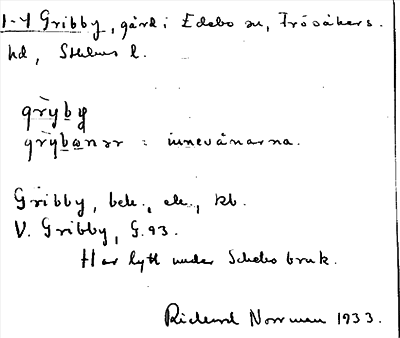 1-4 Gribby, gård i Edebo sn, Frösåkers
hd, Sthlms l.
grỳby
grỳbanər = innevånarna.
Gribby, bek., ek., kb.
V. Gribby, G.93.
Har lytt under Schebo bruk.
Richard Norrman 1933.